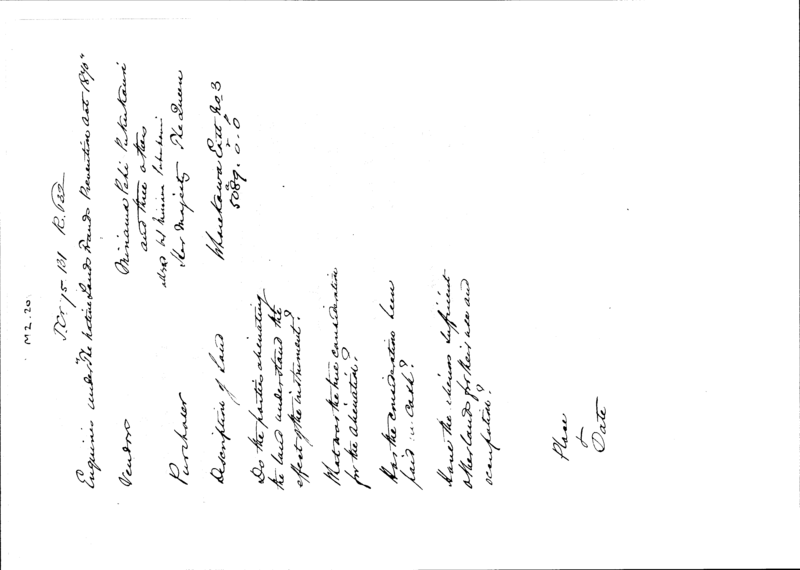 M2.20.
T.Cr 75-131
Enquiries under "The Native Lands Frauds Prevention Act 1870"
Vendors
and three others
Purchaser Her Majesty The Queen
Description of Land Wharekawa East No 3
a r p
5089. 0. 0
Do the parties alienating
the land understand the
effect of the instrument?
What was the true consideration
for the alienation?
Has the consideration been
paid in cash?
Have the Natives sufficient
other lands for their use and
occupation?
Place
&
Date